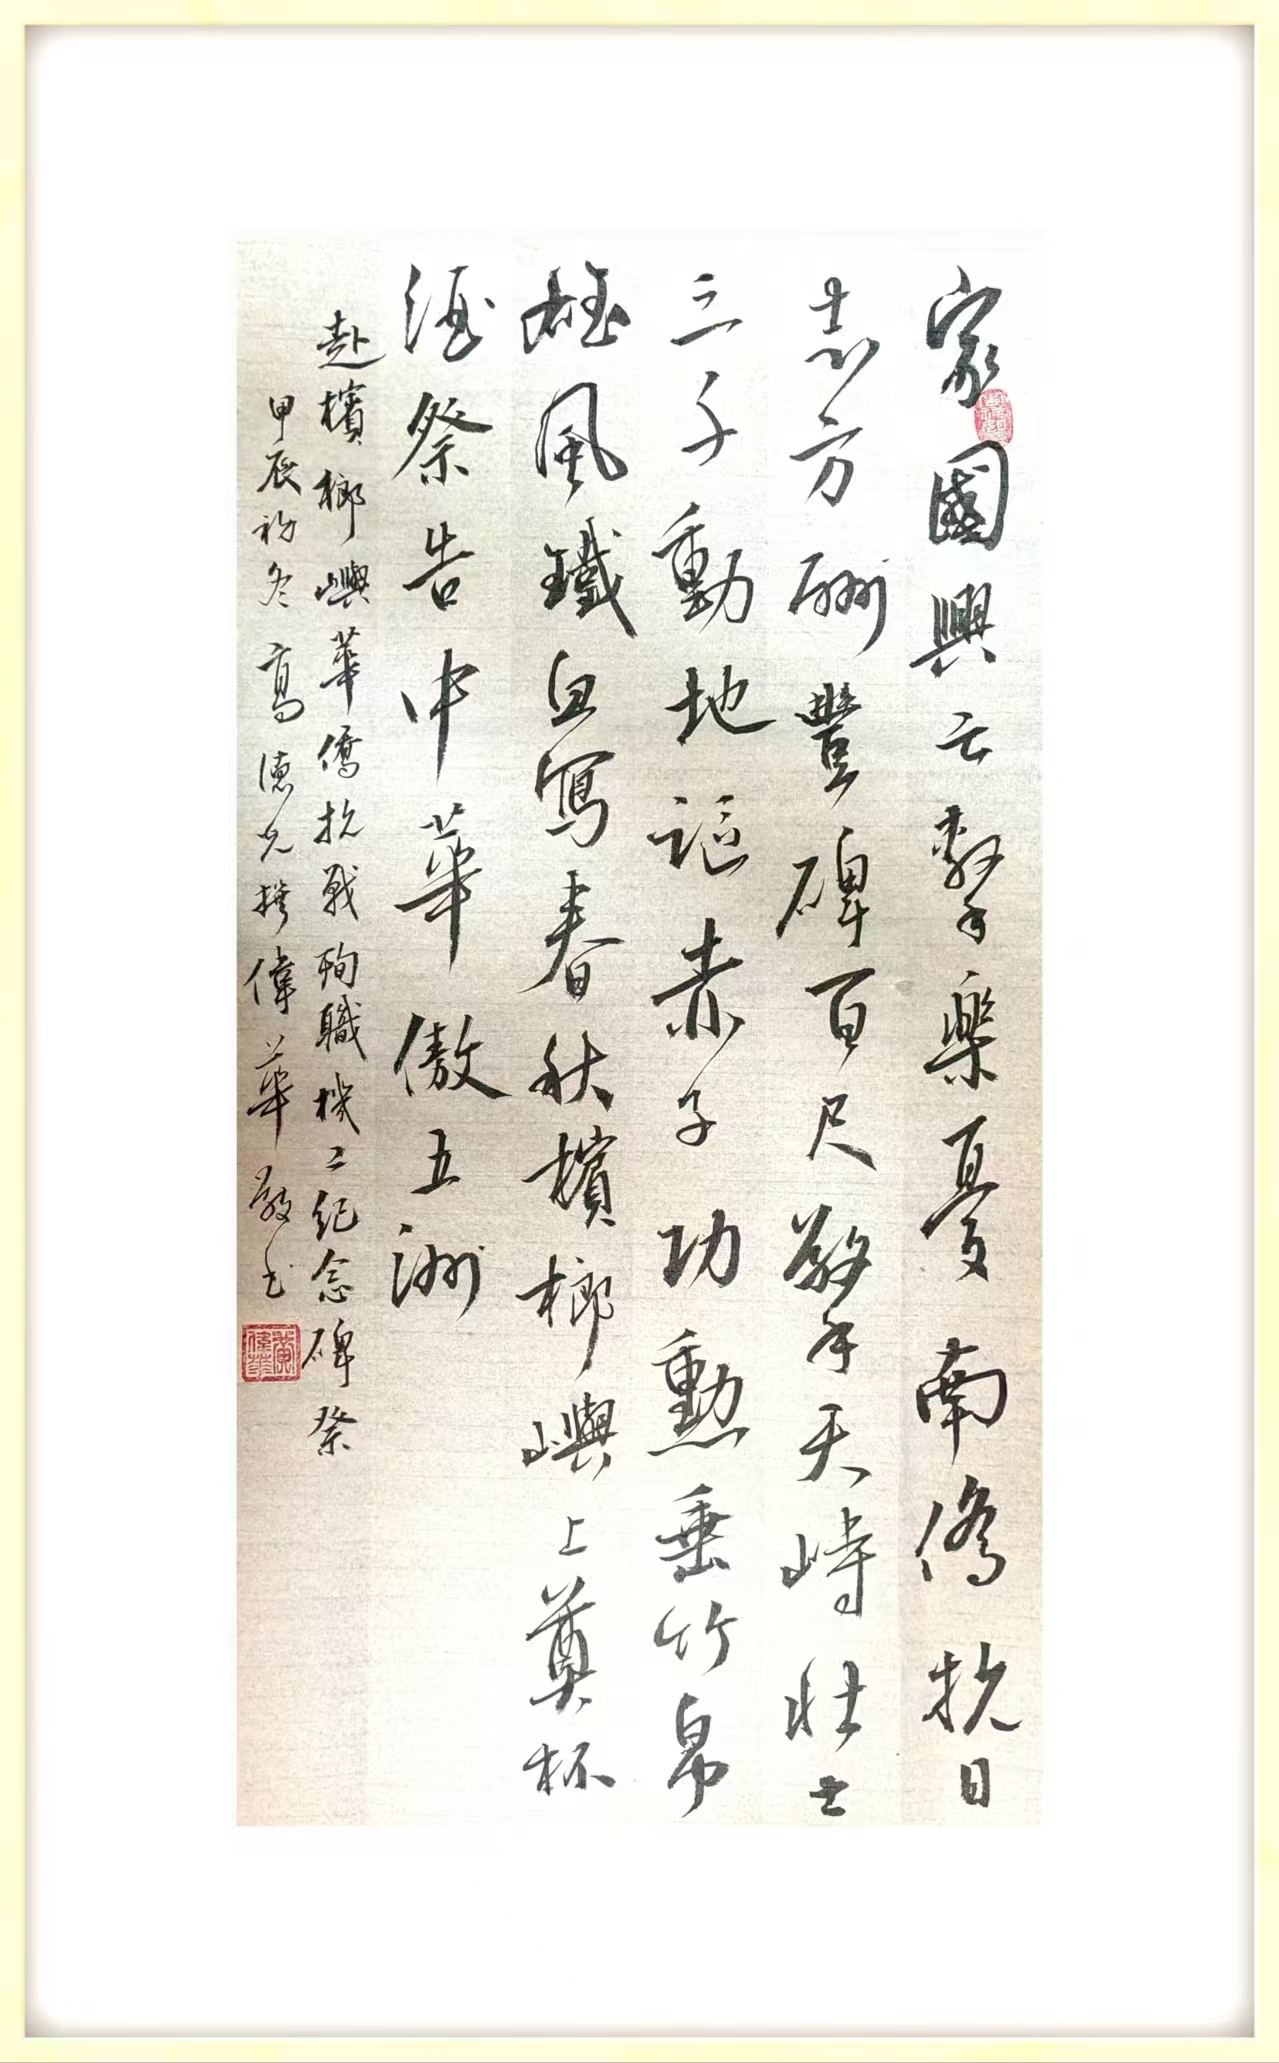 家國興亡繫樂憂南僑抗日
志方酬豐碑百尺擎天峙壯士
三千動地謳赤子功勳垂竹帛
雄風鐵血寫春秋檳榔嶼上奠杯
酒祭告中華傲五洲
赴檳榔嶼華僑抗戰殉職機工紀念碑祭
甲辰初冬高德光撰偉華敬書
黃偉華